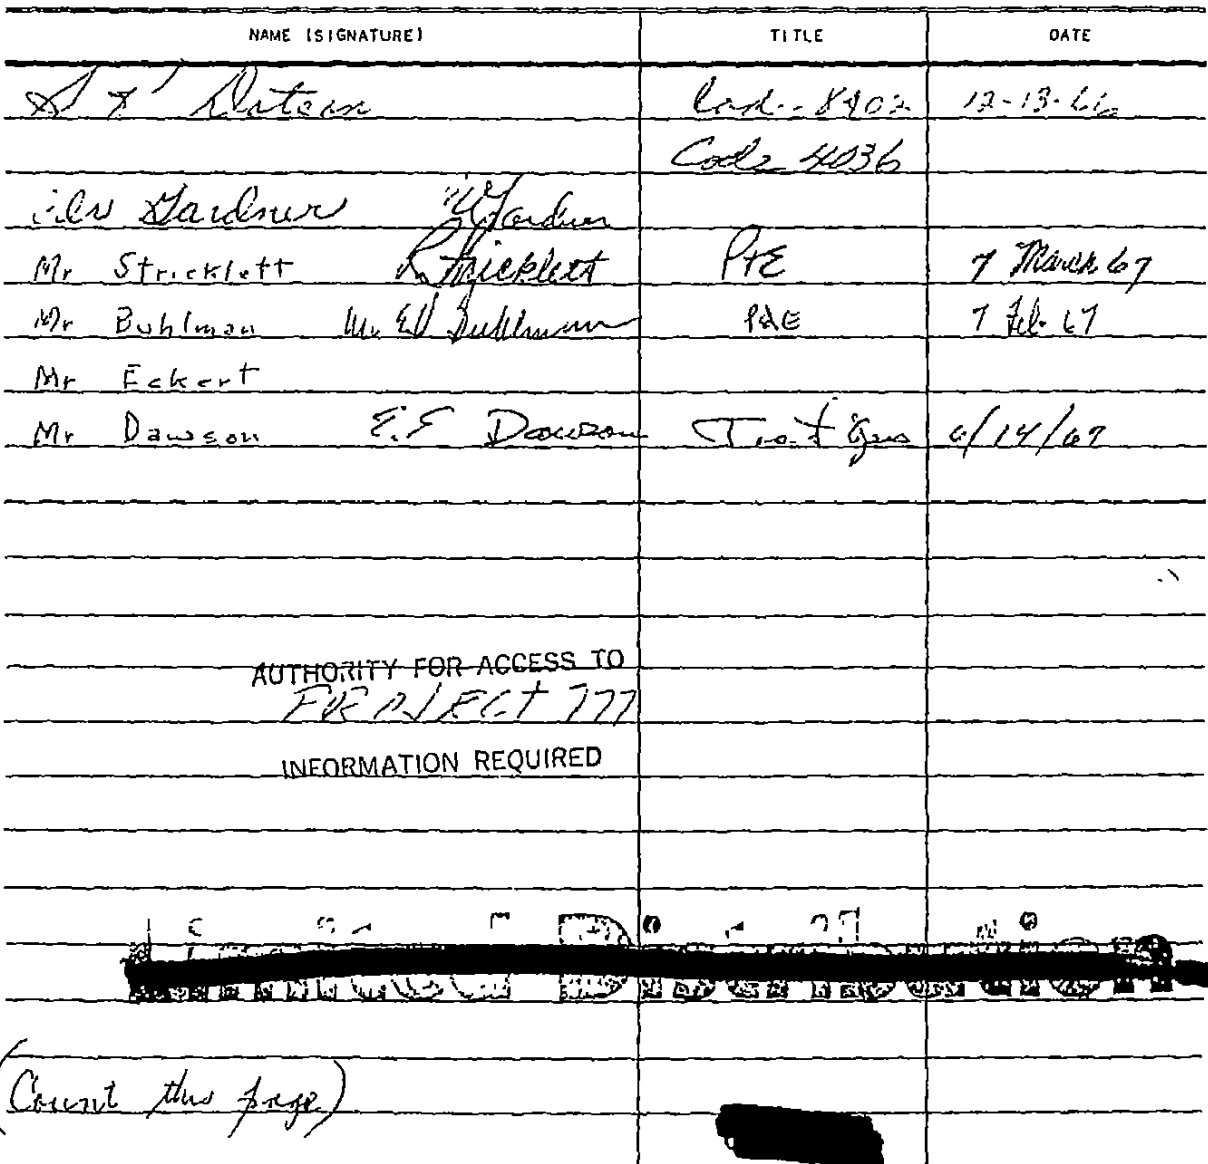 NAME (SIGNATURE) TITLE DATE
Code 8402 12-13-66
Code 4036
Gardner Gardner
Mr Stricklett Stricklett P+E 7 March 67
Mr Buhlman Buhlmann P&E 7 Feb. 67
Mr Eckert
Mr Dawson E.E Dawson 6/14/67
AUTHORITY FOR ACCESS TO
PROJECT 777
INFORMATION REQUIRED
(Count this page)